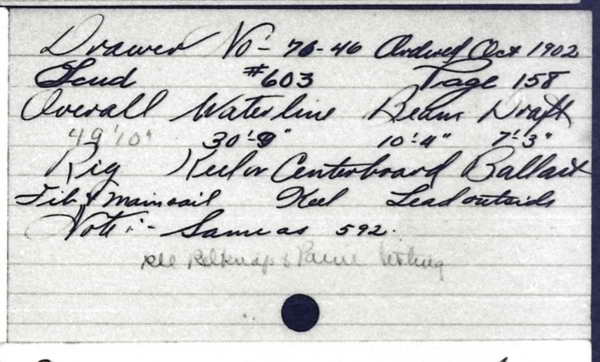 Drawer No:- 76-46 Ordered Oct 1902
Scud #603 Page 158
Overall Waterline Beam Draft
49'10" 30'-9" 10'-4" 7'-3"
Rig Keel or Centerboard Ballast
Jib & Mainsail Keel Lead outside
Note:- Same as 592.
see Belknap & Paine